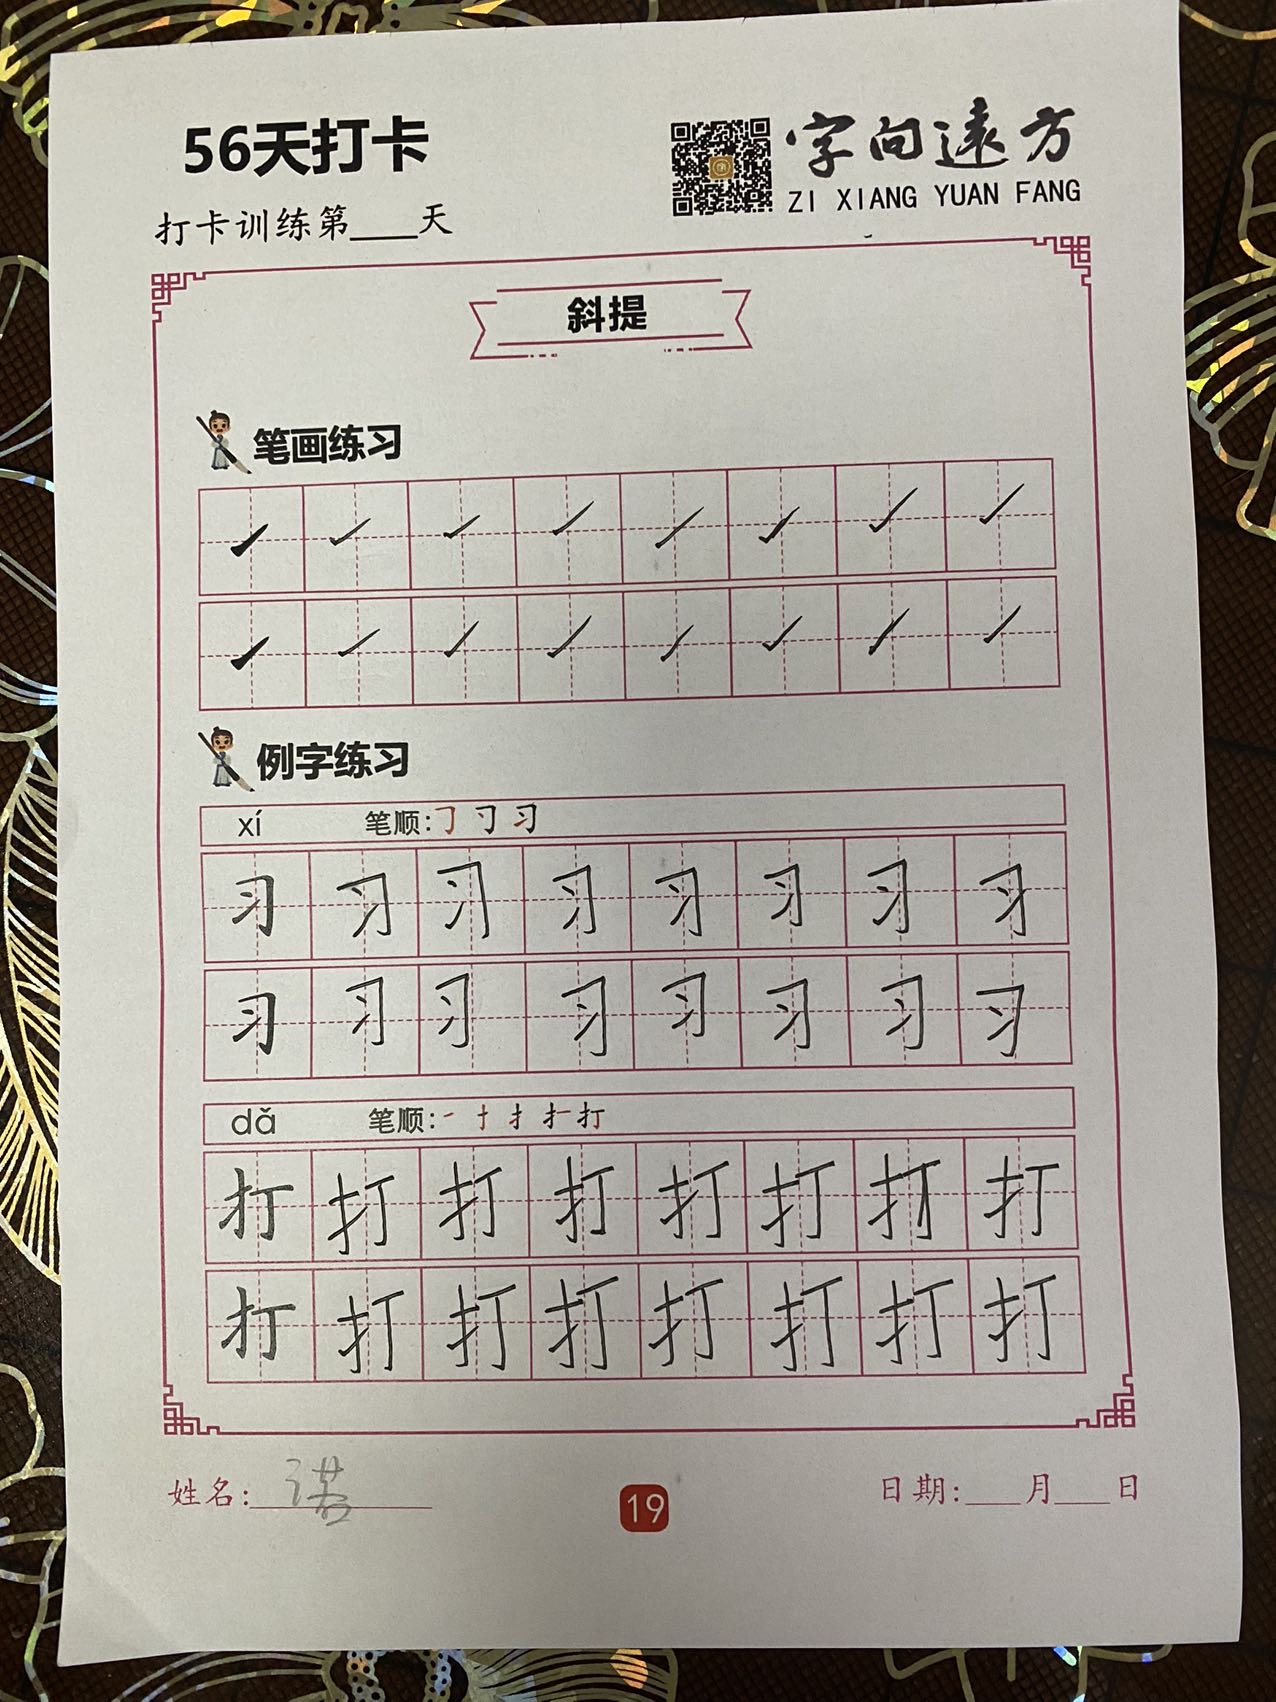 56天打卡
字向远方
ZI XIANG YUAN FANG
打卡训练第___天
斜提
笔画练习
例字练习
xí 笔顺:㇆ 刁 习
习 习 习 习 习 习 习 习
习 习 习 习 习 习 习 习
dǎ 笔顺:一 扌 扌 打
打 打 打 打 打 打 打 打
打 打 打 打 打 打 打 打
姓名:诺
19
日期:___月___日